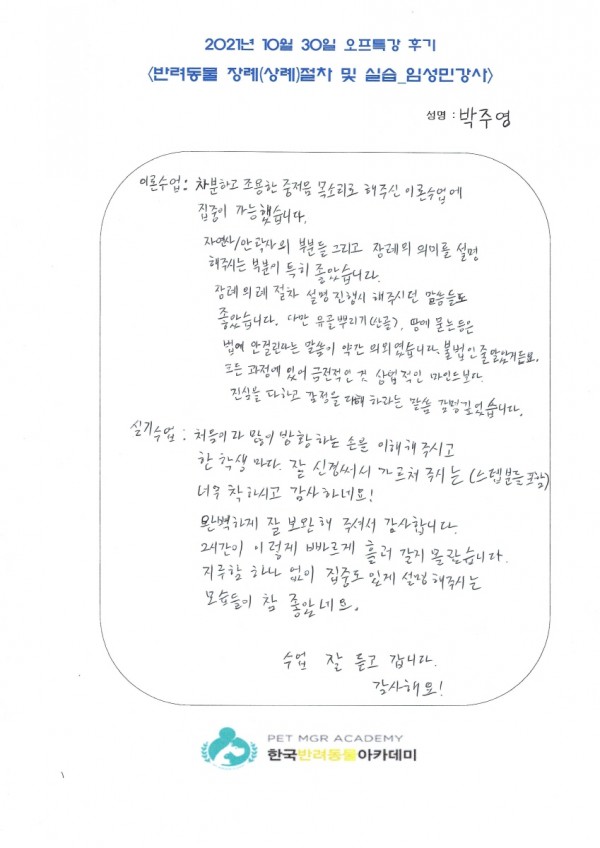 2021년 10월 30일 오프특강 후기
<반려동물 장례(상례)절차 및 실습_임성민강사>
성명 : 박주영
이론수업 : 차분하고 조용한 중저음 목소리로 해주신 이론수업에
집중이 가능했습니다.
자연사/안락사의 부분들 그리고 장례의 의미를 설명
해주시는 부분이 특히 좋았습니다.
장례의례 절차 설명 진행시 해주시던 말씀들도
좋았습니다. 다만 유골뿌리기(산골), 땅에 묻는등은
법에 안걸린다는 말씀이 약간 의외였습니다. 불법인줄 알았거든요.
모든 과정에 있어 금전적인 것 상업적인 마인드보다.
진심을 다하고 감정을 다해 하라는 말씀 감명깊었습니다.
실기수업 : 처음이라 많이 방황하는 손을 이해해주시고
한 학생마다. 잘 신경써서 가르쳐 주시는 (스텝분들 포함)
너무 착하시고 감사하네요!
완벽하게 잘 보완해 주셔서 감사합니다.
2시간이 이렇게 빠르게 흘러 갈지 몰랐습니다.
지루함 하나 없이 집중도 있게 설명해주시는
모습들이 참 좋았네요.
수업 잘 듣고 갑니다.
감사해요!
PET MGR ACADEMY
한국반려동물아카데미